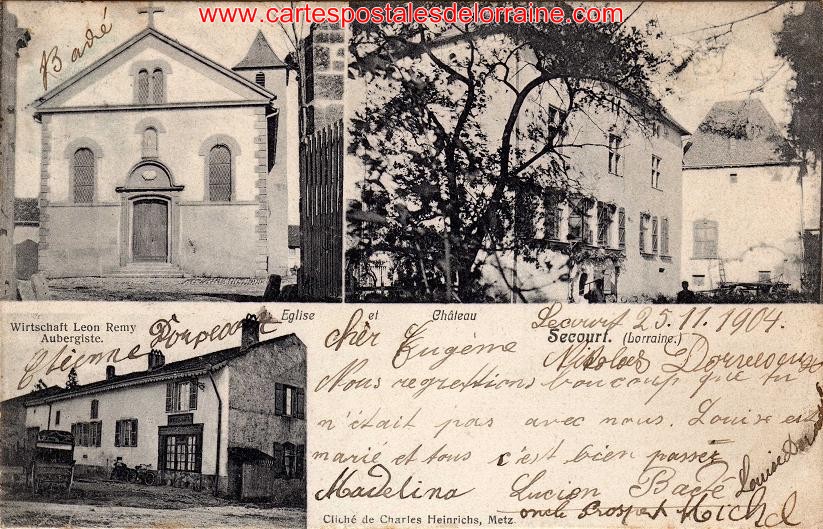 www.cartespostalesdelorraine.com
Badé
Eglise et Château
Wirtschaft Leon Remy
Aubergiste.
Etienne
Secourt 25.11.1904.
Secourt. (Lorraine.)
chêr Eugéne
Nicolas
Nous regrettions beaucoup que tu
n'était pas avec nous. Louise est
marié et tous c'est bien passée
Madelina Lucien Badé Louise
oncle Prospert Michel
Cliché de Charles Heinrichs, Metz